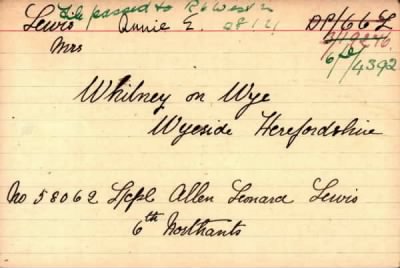 Lewis File passed to R6 West 2 DP/66 L
Mrs Annie E. 28121 2/19246.
6/D/4392
Whitney on Wye
Wyeside Herefordshire
No 58062 L/cpl Allen Leonard Lewis
6th Northants